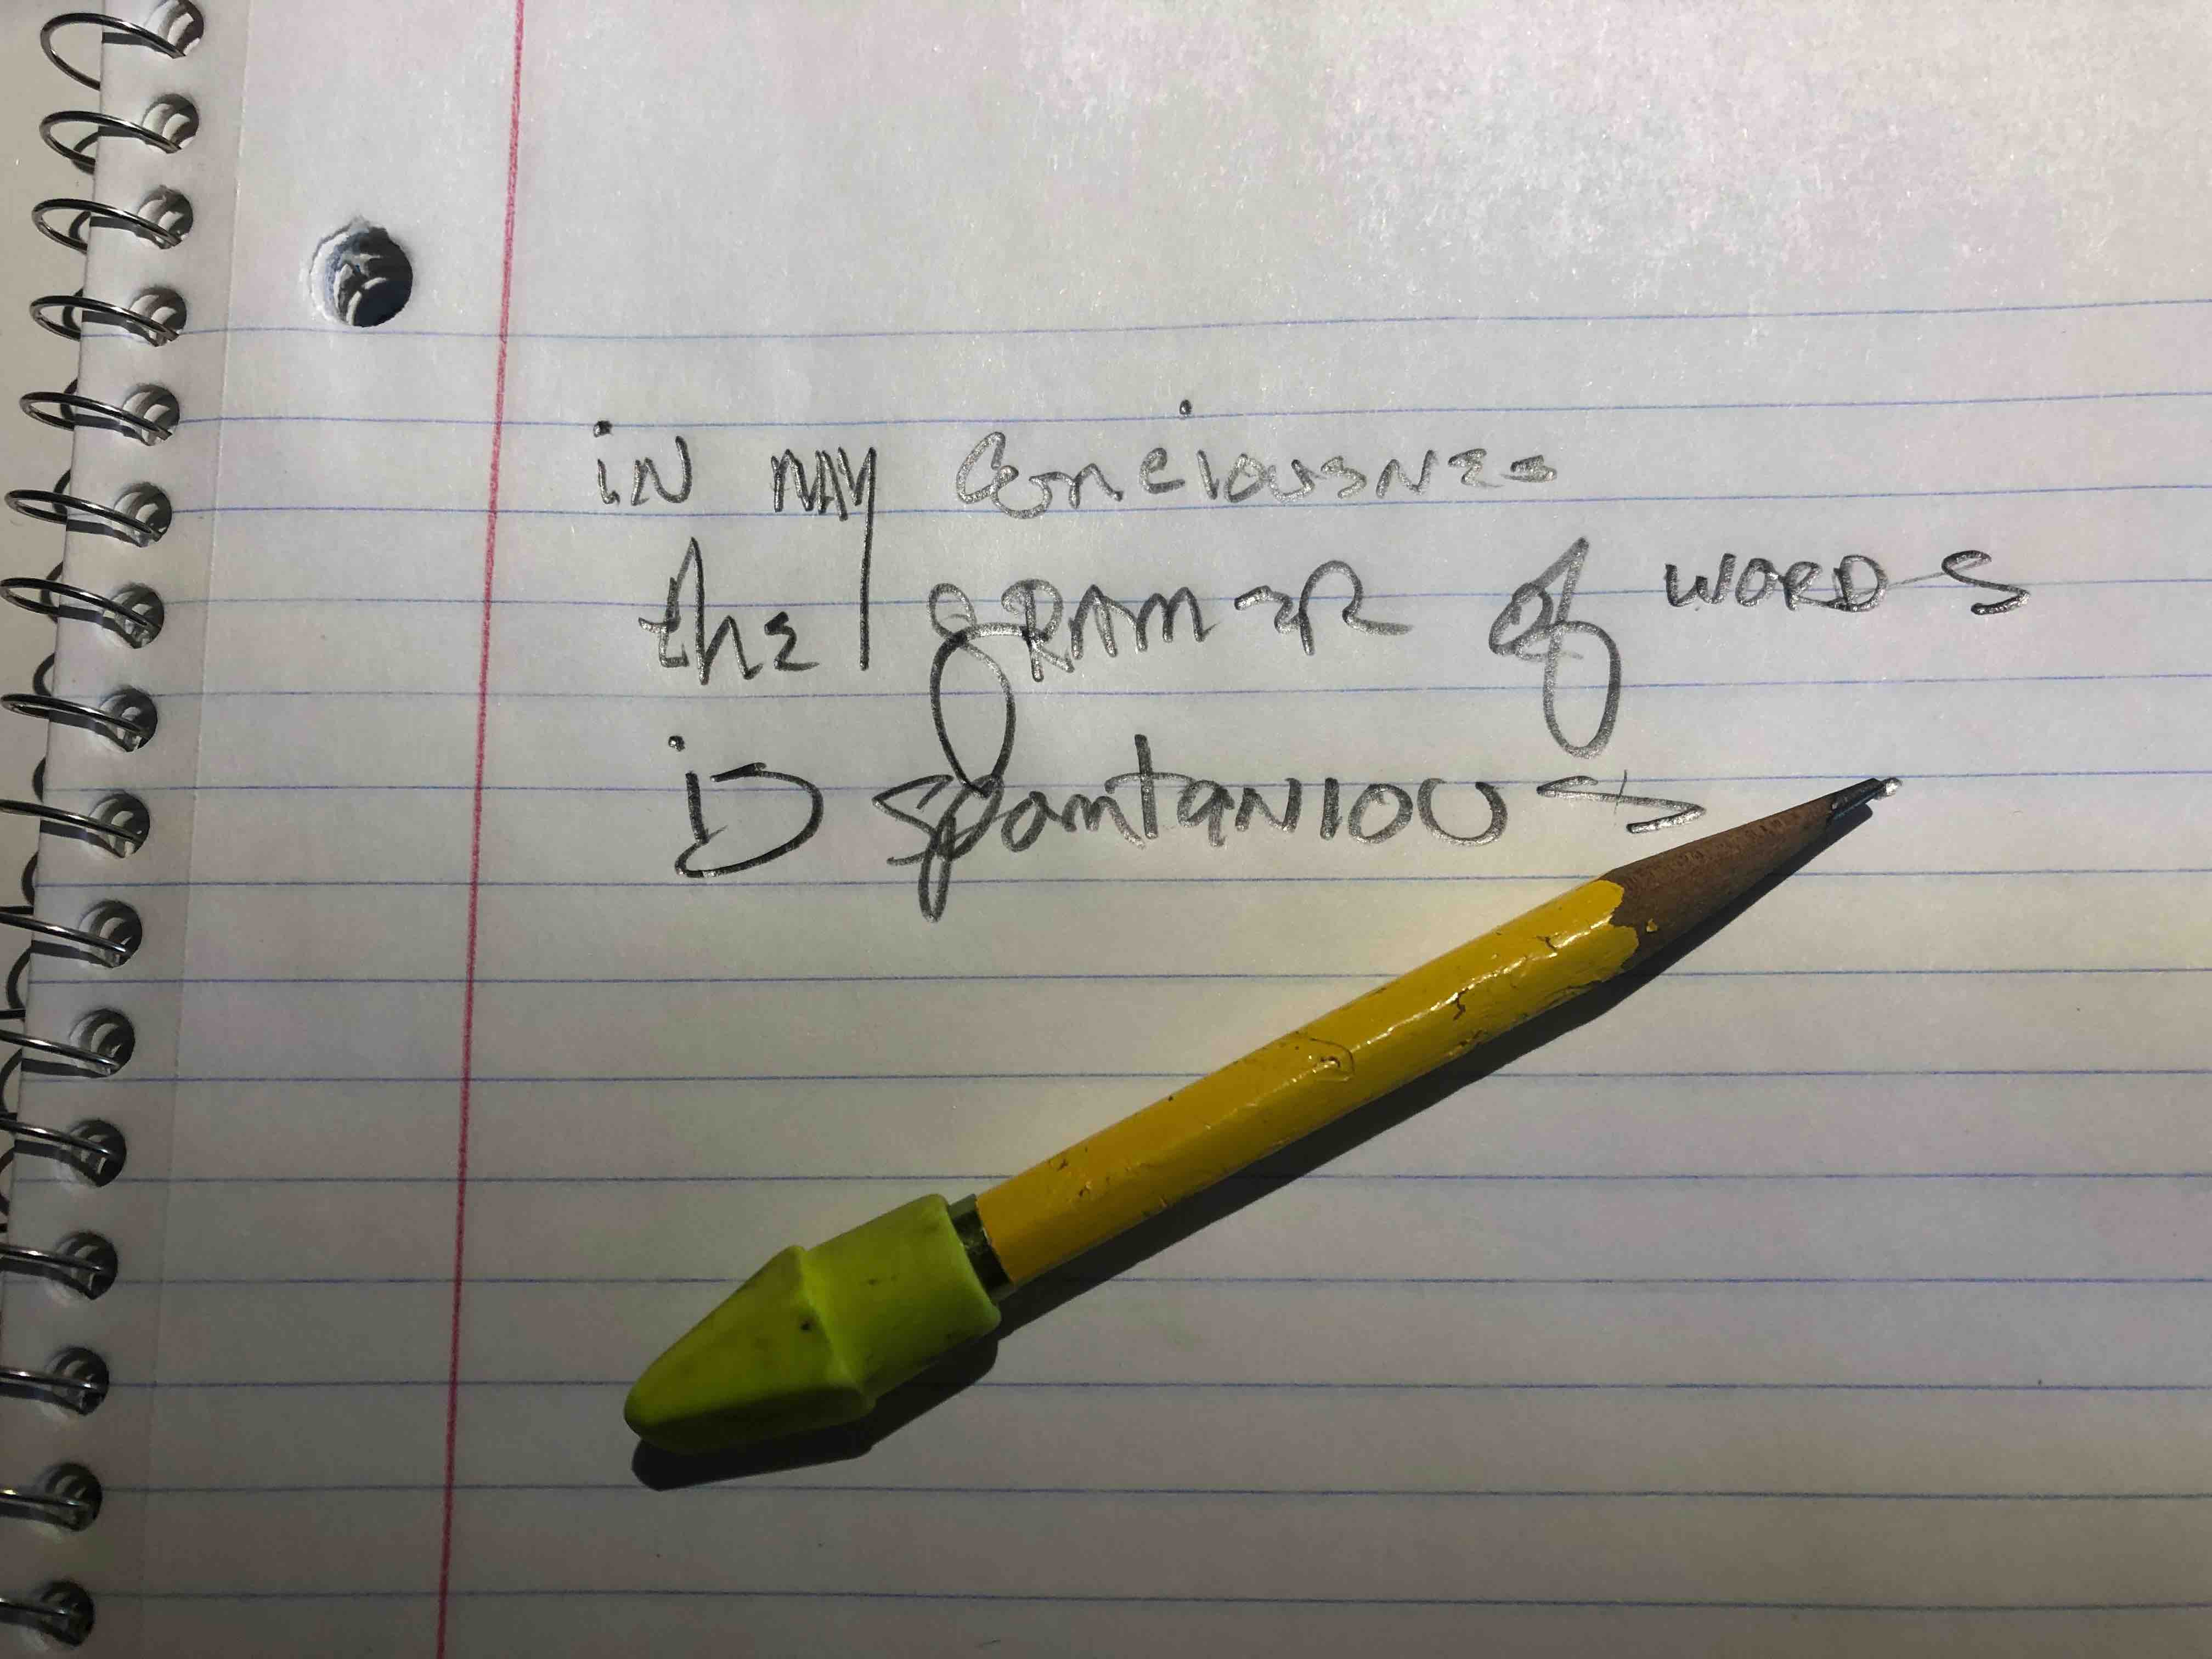 in my Conciousnes
the gRAMER of WORDS
is spontanious